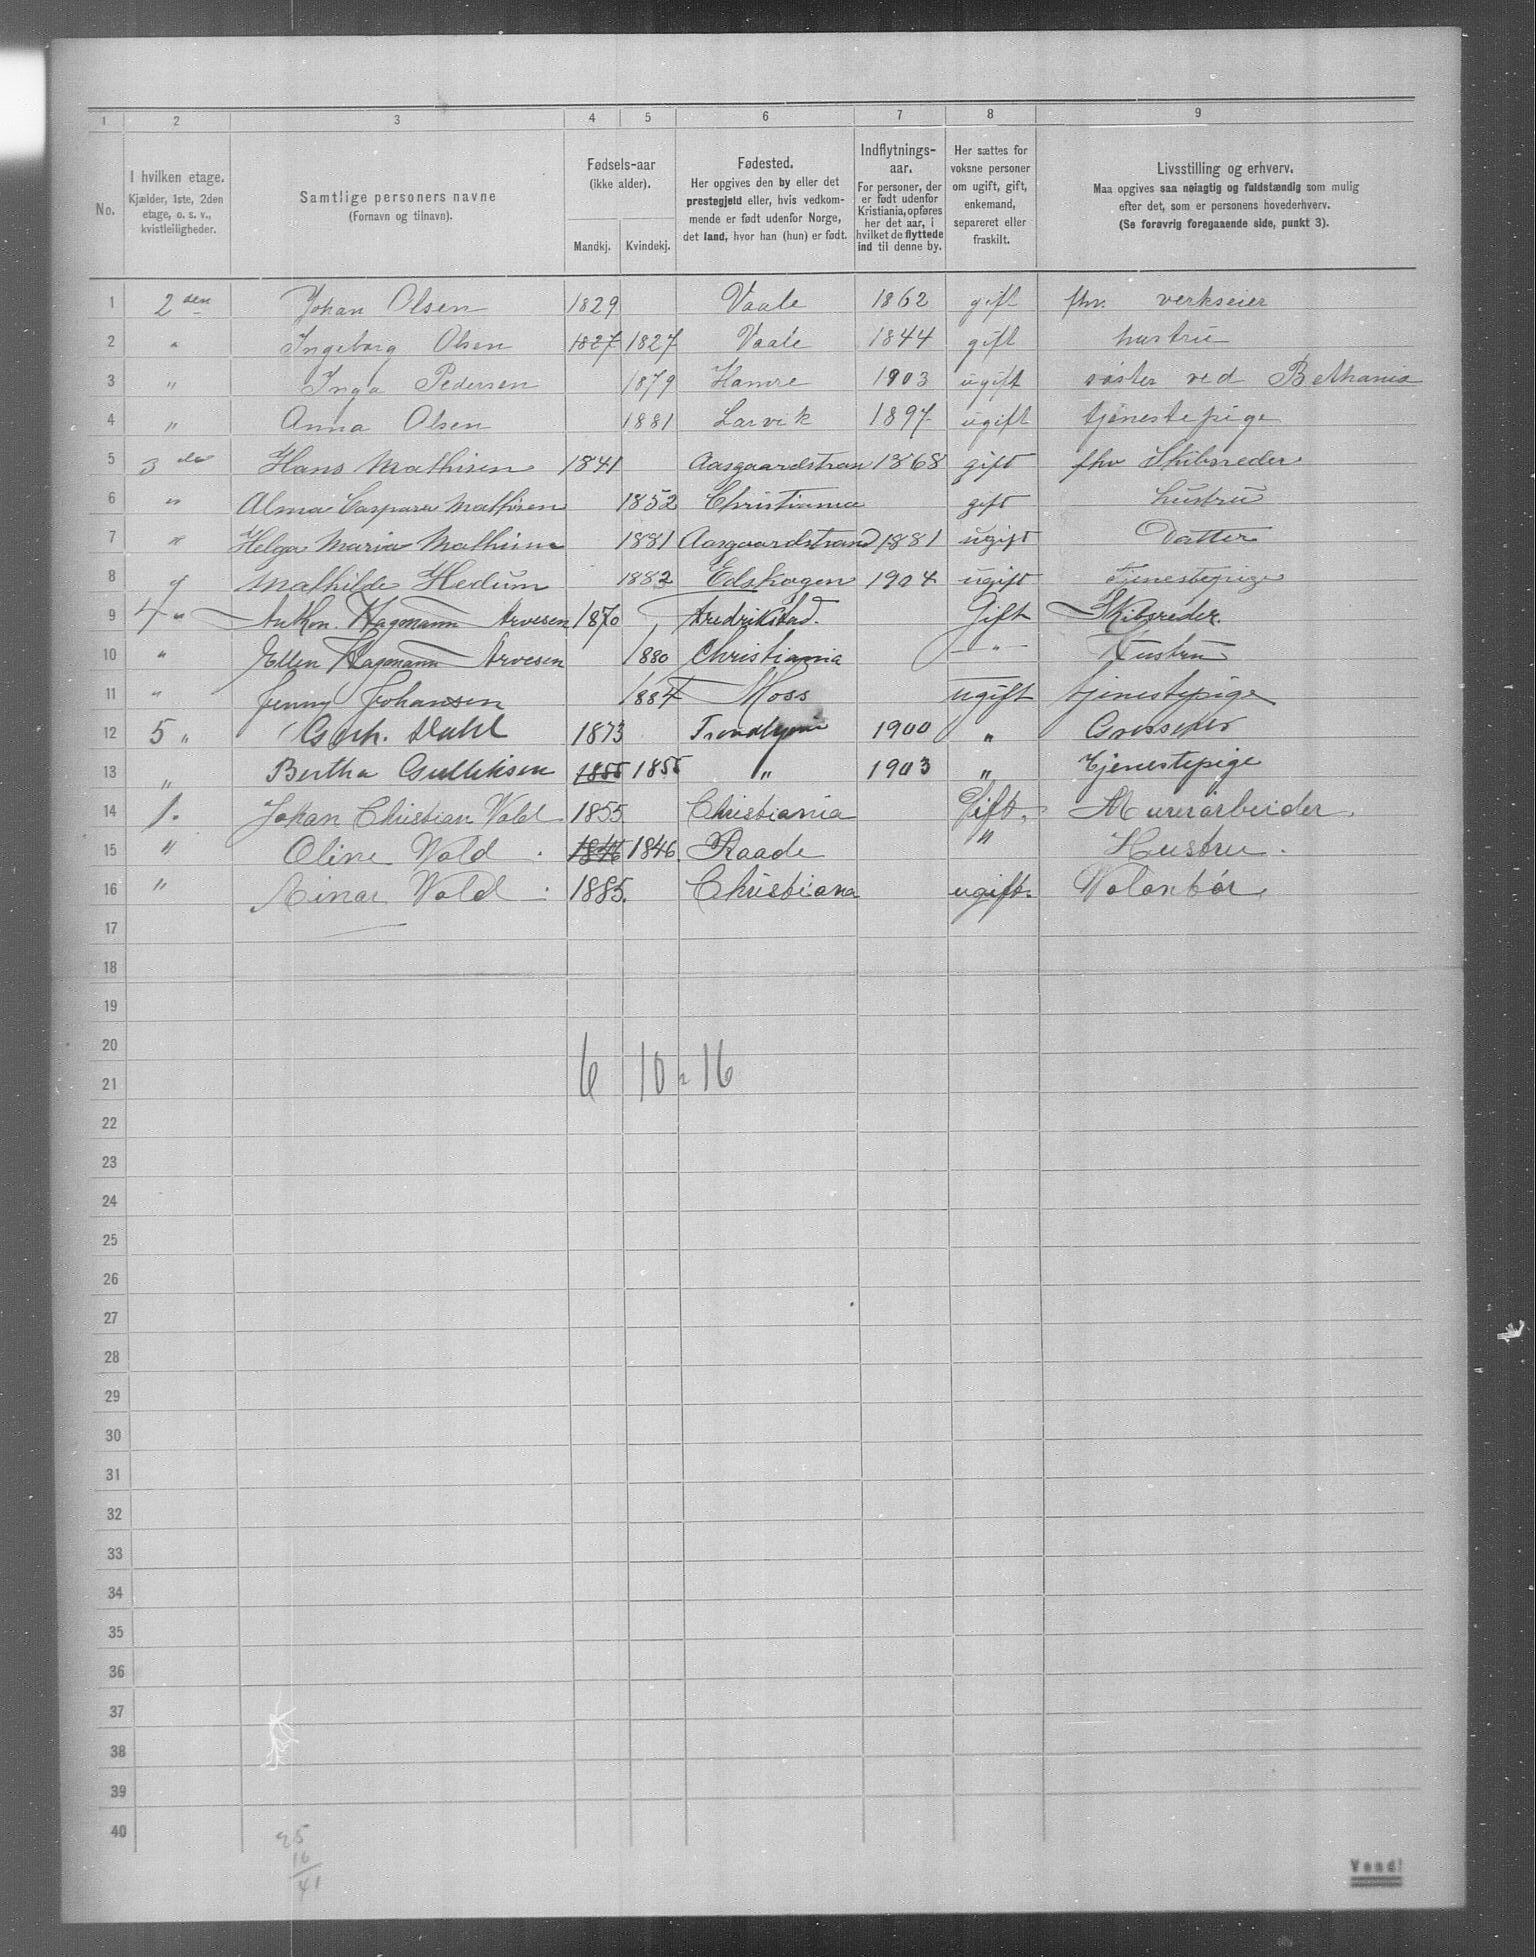 1 2 3 4 5 6 7 8 9
No.
I hvilken etage.
Kjælder, 1ste, 2den
etage, o. s. v.,
kvistleiligheder.
Samtlige personers navne
(Fornavn og tilnavn).
Fødsels-aar
(ikke alder).
Mandkj. Kvindekj.
Fødested.
Her opgives den by eller det
prestegjeld eller, hvis vedkom-
mende er født udenfor Norge,
det land, hvor han (hun) er født.
Indflytnings-
aar.
For personer, der
er født udenfor
Kristiania, opføres
her det aar, i
hvilket de flyttede
ind til denne by.
Her sættes for
voksne personer
om ugift, gift,
enkemand,
separeret eller
fraskilt.
Livsstilling og erhverv.
Maa opgives saa nøiagtig og fuldstændig som mulig
efter det, som er personens hovederhverv.
(Se forøvrig foregaaende side, punkt 3).
1 2den Johan Olsen 1829 Vaale 1862 gift fhv. verkseier
2 " Ingeborg Olsen 1827 1827 Vaale 1844 gift hustru
3 " Inga Pedersen 1879 Hamre 1903 ugift søster ved Bethania
4 " Anna Olsen 1881 Larvik 1897 ugift tjenestepige
5 3de Hans Mathisen 1841 Aasgaardstran 1868 gift fhv Skibsreder
6 " Alma Caspara Mathisen 1852 Christiania gift hustru
7 " Helga Maria Mathisen 1881 Aasgaardstrand 1881 ugift Datter
8 " Mathilde Hedum 1882 Edskogen 1904 ugift Tjenestepige
9 4 " Anthon. Hagmann Arvesen 1870 Fredrikstad. Gift Skibsreder.
10 " Ellen Hagmann Arvesen 1880 Christiania " Hustru
11 " Jenny Johansen 1884 Moss ugift tjenestepige
12 5 " Dahl 1873 Trondhjem 1900 " Grosserer
13 " Bertha Gulliksen 1855 1855 " 1903 " Tjenestepige
14 1. Johan Christian Vold 1855 Christiania Gift. Murerarbeider.
15 " Oline Vold. 1846 1846. Raade " Hustru.
16 " Einar Vold. 1885. Christiana ugift. Volontør.
17
18
19
20
21
6 10 = 16
22
23
24
25
26
27
28
29
30
31
32
33
34
35
36
37
38
39
40
25
16
41
Vend!